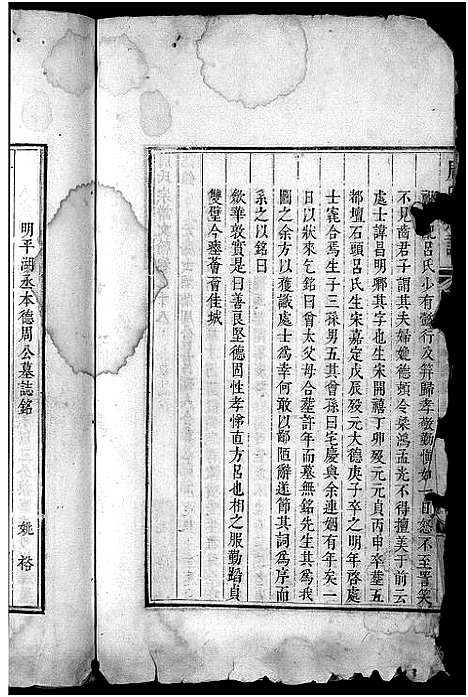 配呂氏少有懿行及笄歸孝敬勤慎如一自怒不至詈笑
不見齒君子謂其夫婦媲德頼令梁鴻孟光不得擅美于前云
處士諱昌明卿其字也生宋開禧丁卯歿元元貞丙申卒塟五
都壇石頭呂氏生宋嘉定戊辰歿元大德庚子卒之明年啓處
士窀合焉生子三孫男五其曾孫曰宅慶與余連姻有年矣一
日以狀來乞銘曰曾太父母合塟許年而墓無銘先生其爲我
圖之余方以獲識處士爲幸何敢以鄙陋辭遂節其詞爲序而
系之以銘曰
歛華敦實是曰善良堅德固性孝悌直方呂也相之服勤蹈貞
雙璧今塟薈薈佳城
明平湖丞本德周公墓誌銘
姚裕